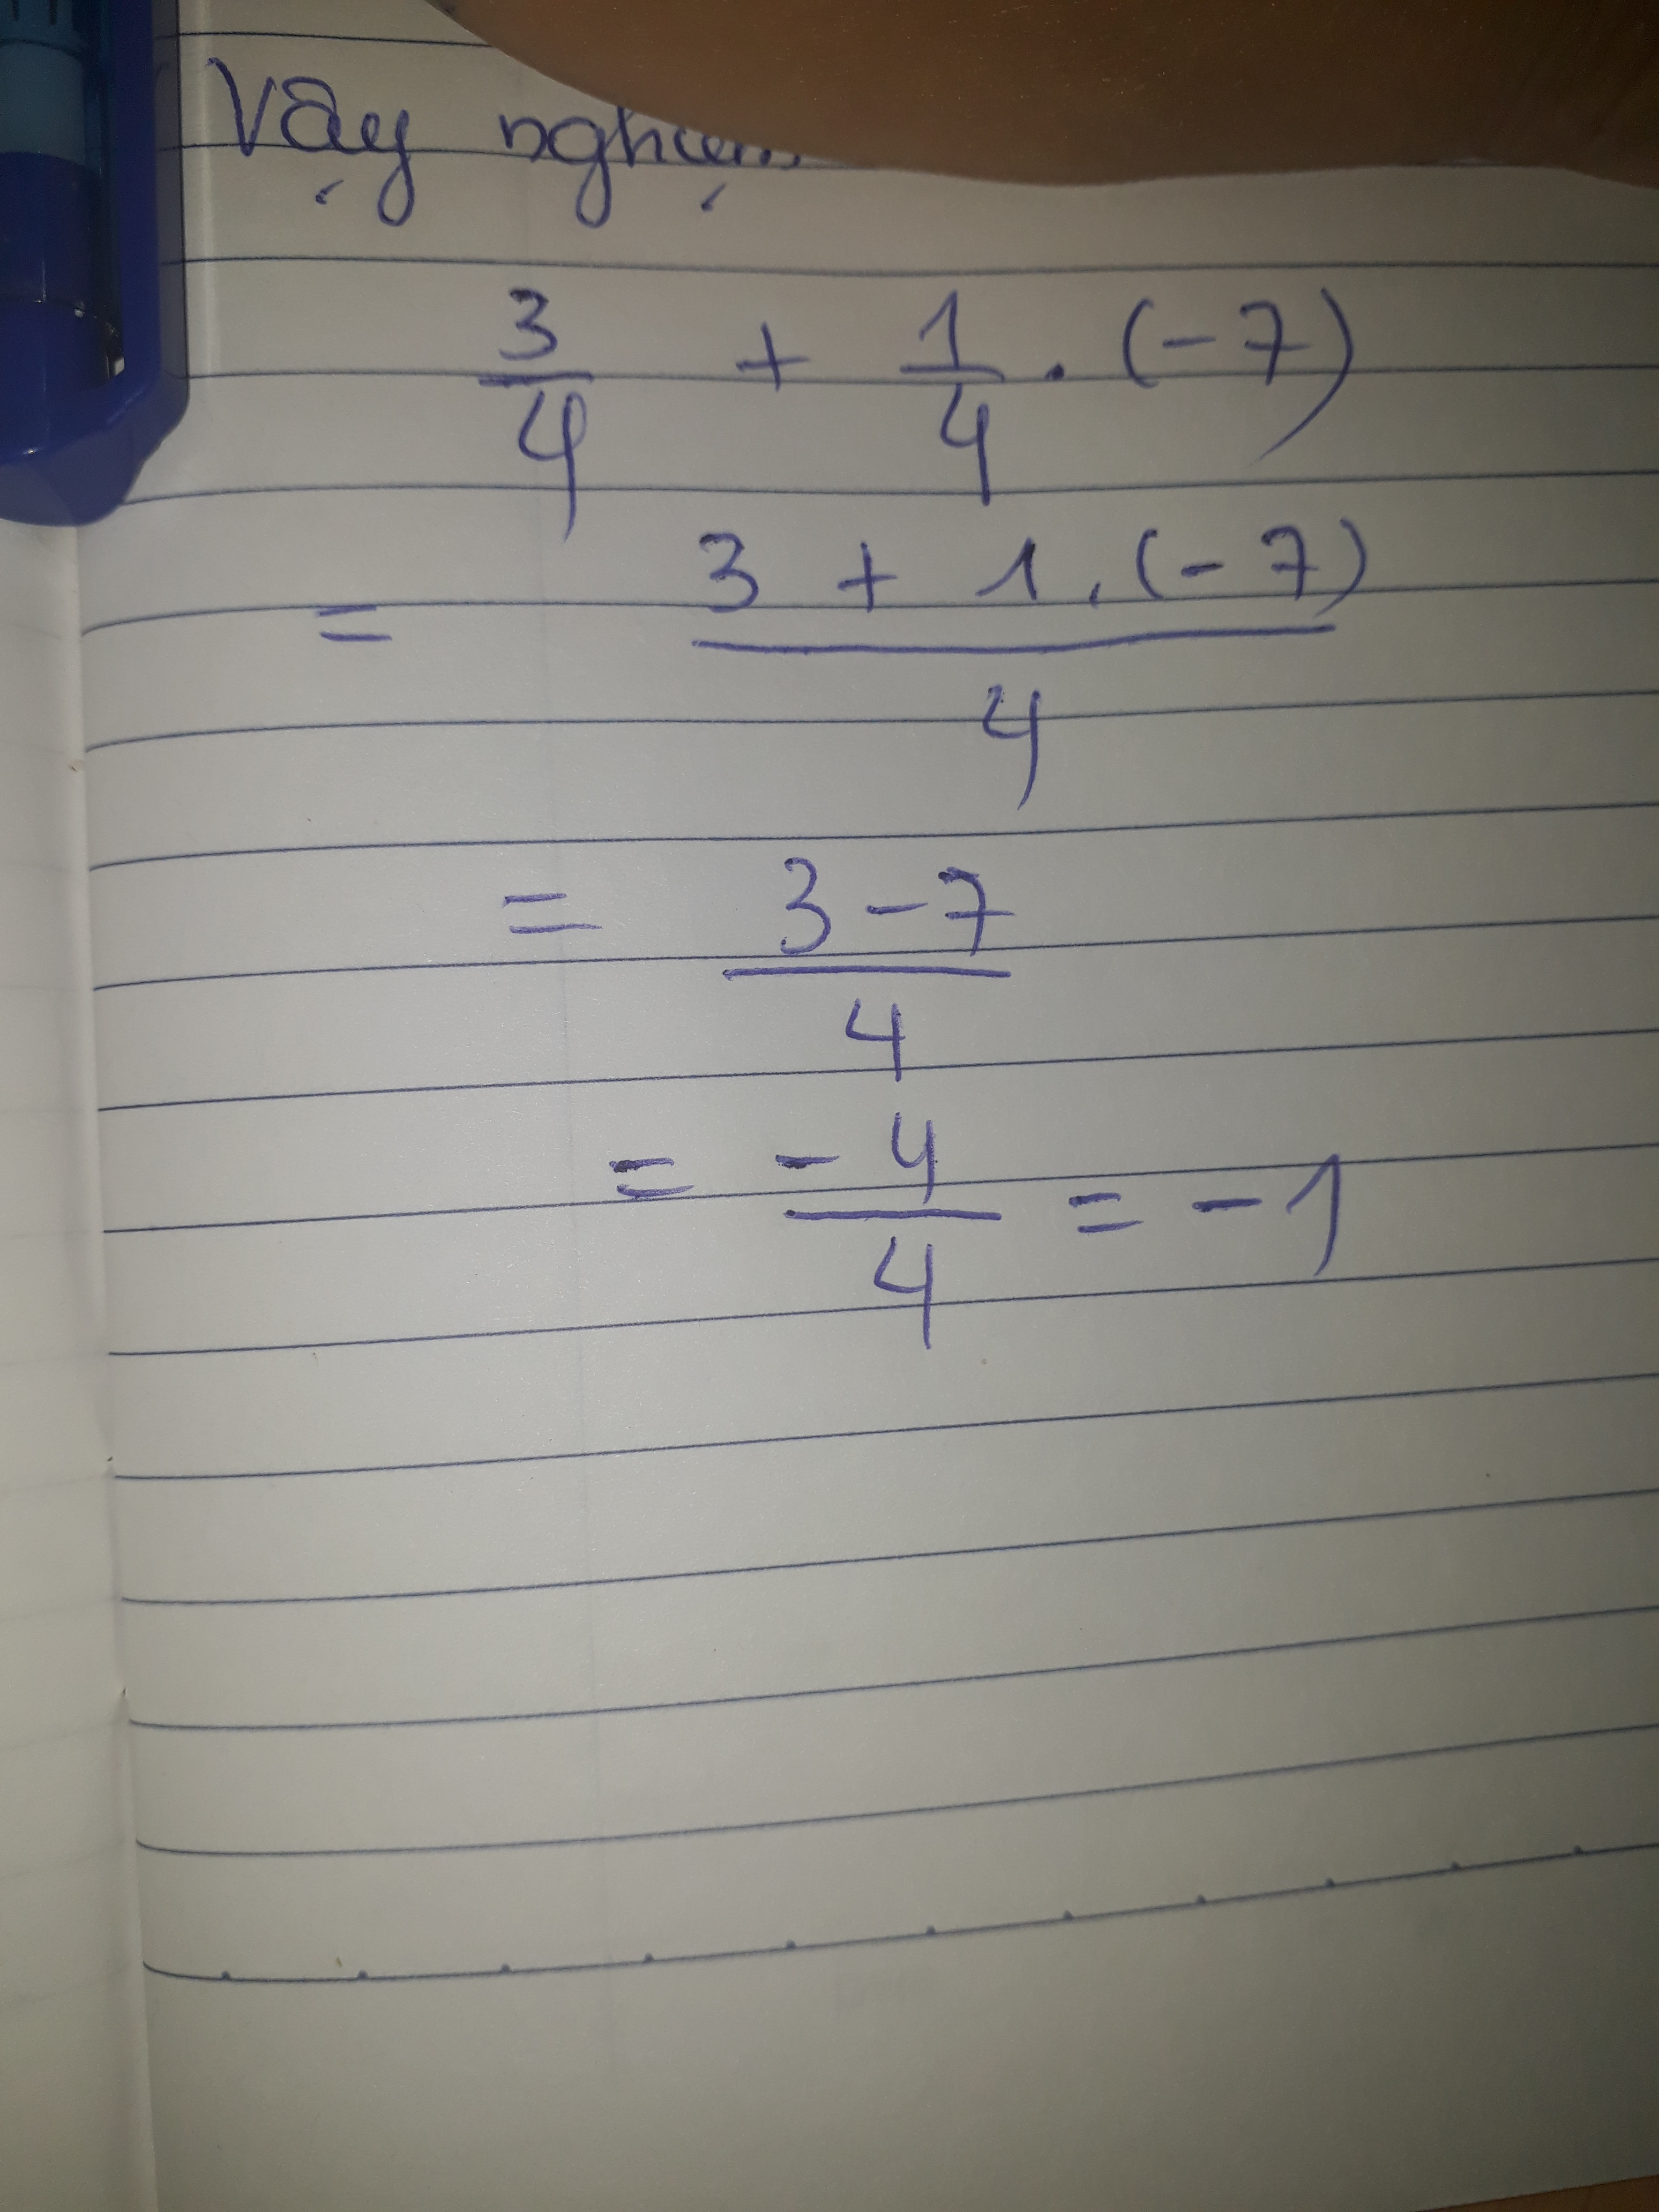 Vậy nghiệm
3/4 + 1/4 . (-7)
= (3 + 1 . (-7))/4
= (3 - 7)/4
= -4/4 = -1